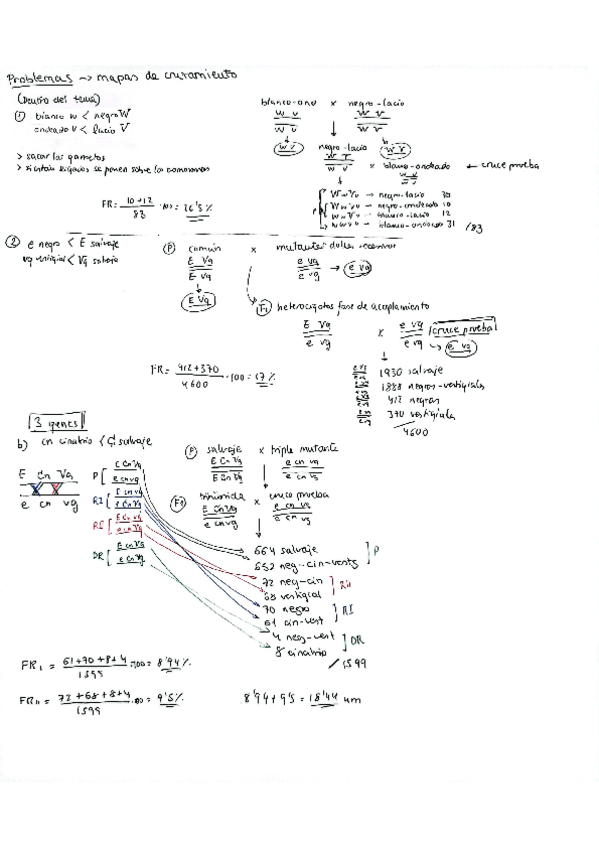 Problemas → mapas de cruzamiento
(Dentro del tema)
① blanco w < negro W
ondrado v < lacio V
> sacar los gametos
> si están ligados se ponen sobre los cromosomas
blanco-ond x negro-lacio
w v W V
w v W V
w v
negro-lacio
W V
w v
x blanco-ondrado ← cruce prueba
w v
w v
P
WwVv → negro-lacio 30
Wwvv → negro-ondrado 10
wwVv → blanco-lacio 12
wwvv → blanco-ondrado 31 /83
FR = 10+12 / 83 · 100 = 26'5 %
② e negro < E salvaje
vg vestigial < Vg salvaje
Ⓟ común x mutantes dobles recesivos
E Vg e vg → e vg
E Vg e vg
E Vg
F1 heterocigotos fase de acoplamiento
E Vg x e vg cruce prueba
e vg e vg → e vg
1930 salvaje
1888 negros-vestigiales
412 negras
370 vestigiales
4600
FR = 412+370 / 4600 · 100 = 17 %
3 genes
b) cn cinabrio < Cn salvaje
Ⓟ salvaje x triple mutante
E Cn Vg e cn vg
E Cn Vg e cn vg
F1 trihíbrida x cruce prueba
E Cn Vg e cn vg
e cn vg e cn vg
E Cn Vg
e cn vg
P [ E Cn Vg
e cn vg
RI [ E cn vg
e Cn Vg
RII [ E Cn vg
e cn Vg
DR [ E cn Vg
e Cn vg
664 salvaje
652 neg-cin-vestg ] P
72 neg-cin
68 vestigial ] RII
70 negro
61 cin-vest ] RI
4 neg-vest
8 cinabrio ] DR
/1599
FR I = 61+70+8+4 / 1599 · 100 = 8'94 %
FR II = 72+68+8+4 / 1599 · 100 = 9'5 %
8'94 + 9'5 = 18'44 um